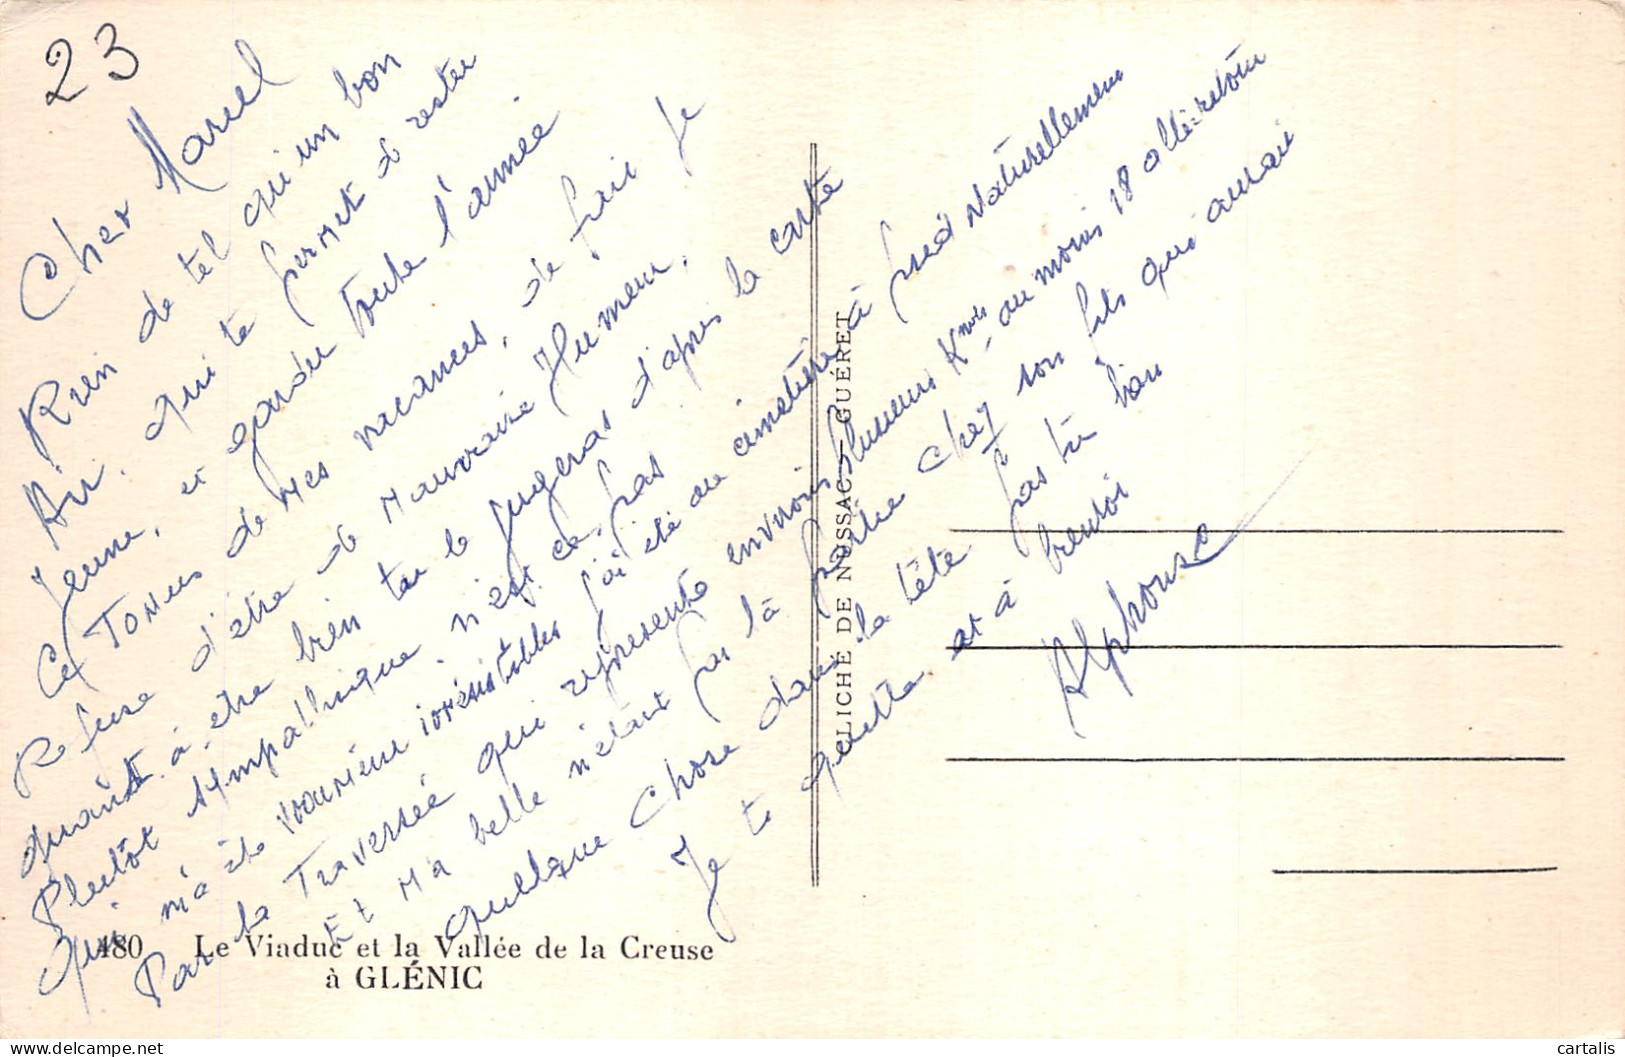 23
Cher Marcel
Rien de tel qu'un bon
Air. qui te permet d rester
Jeune, et garder toute l'année
Ce Tonus de mes vacances, de fait je
Refuse d'être de Mauvaise Humeur,
quant à être bien tu le jugeras d'apres la carte
Plutôt sympathique, n'est ce pas
qui m'a été irrésistible j'ai été au cimetière à pied Naturellement
Par la Traversée qui represente environ plusieurs Kmols au moins 18 allé-retour
Et Ma belle n'étant pas là partie chez son fils qui aurait
quelque Chose dans la tête pas très bien
Je te quitte et à bientôt
Alphonse
480 Le Viaduc et la Vallée de la Creuse
à GLÉNIC
CLICHÉ DE NUSSAC - GUÉRET
cartalis
delcampe.net